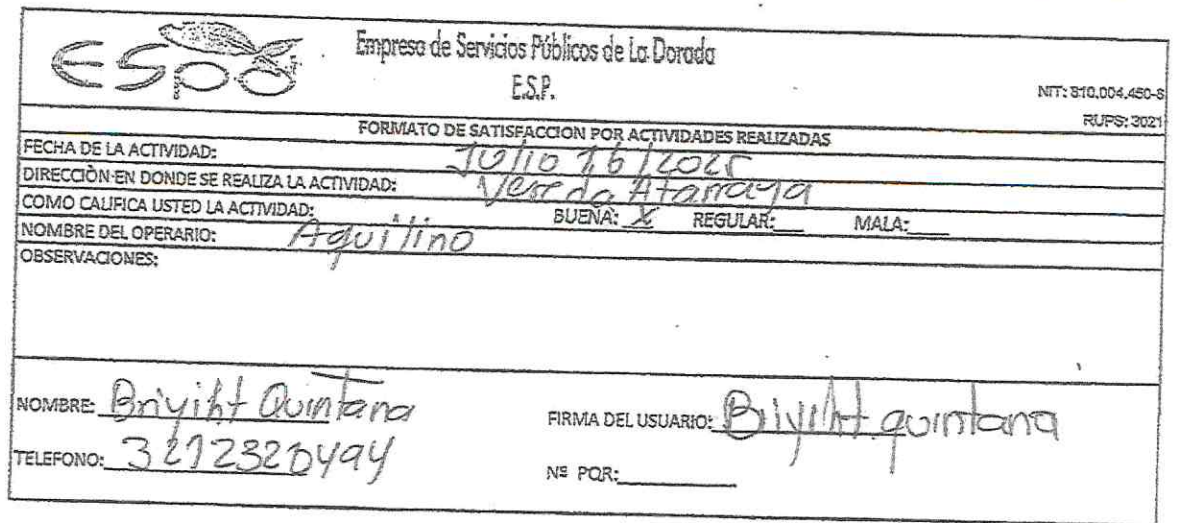 ESPD
Empresa de Servicios Públicos de La Dorada
E.S.P.
NIT: 810.004.450-S
RUPS: 3021
FORMATO DE SATISFACCION POR ACTIVIDADES REALIZADAS
FECHA DE LA ACTIVIDAD: Julio 16/2025
DIRECCIÒN EN DONDE SE REALIZA LA ACTIVIDAD: Vereda Atarraya
COMO CALIFICA USTED LA ACTIVIDAD: BUENA: X REGULAR:___ MALA:____
NOMBRE DEL OPERARIO: Aquilino
OBSERVACIONES:
NOMBRE: Briyiht Quintana FIRMA DEL USUARIO: Briyiht quintana
TELEFONO: 3212320494 Nº PQR: